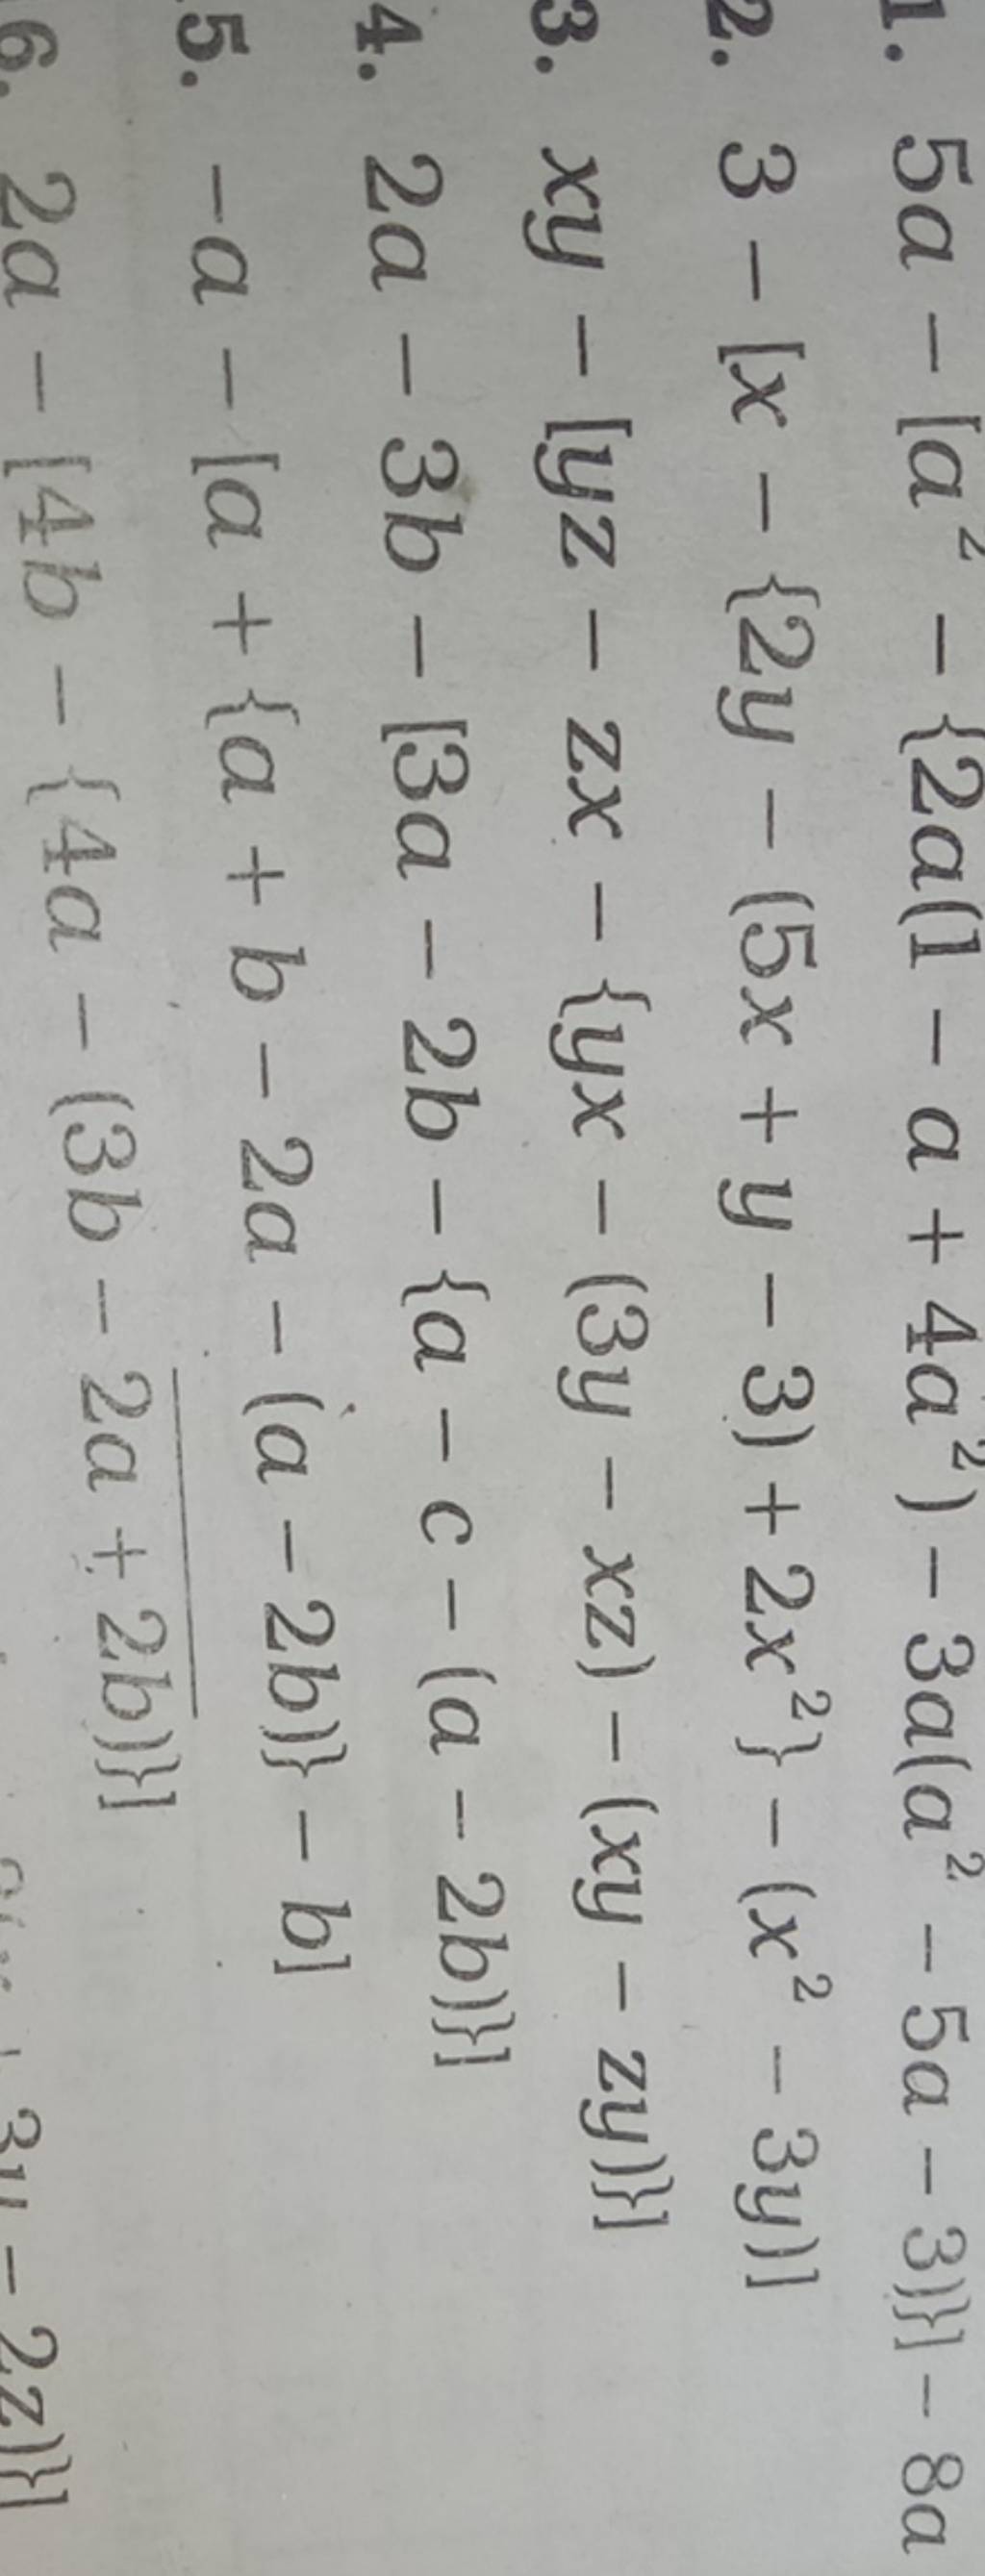 1. 5a − [a² − {2a(1 − a + 4a²) − 3a(a² − 5a − 3)}] − 8a
2. 3 − [x − {2y − (5x + y − 3) + 2x²} − (x² − 3y)]
3. xy − [yz − zx − {yx − (3y − xz) − (xy − zy)}]
4. 2a − 3b − [3a − 2b − {a − c − (a − 2b)}]
5. −a − [a + {a + b − 2a − (a − 2b)} − b]
6. 2a − [4b − {4a − (3b − \overline{2a + 2b})}]
3y − 2z)}]